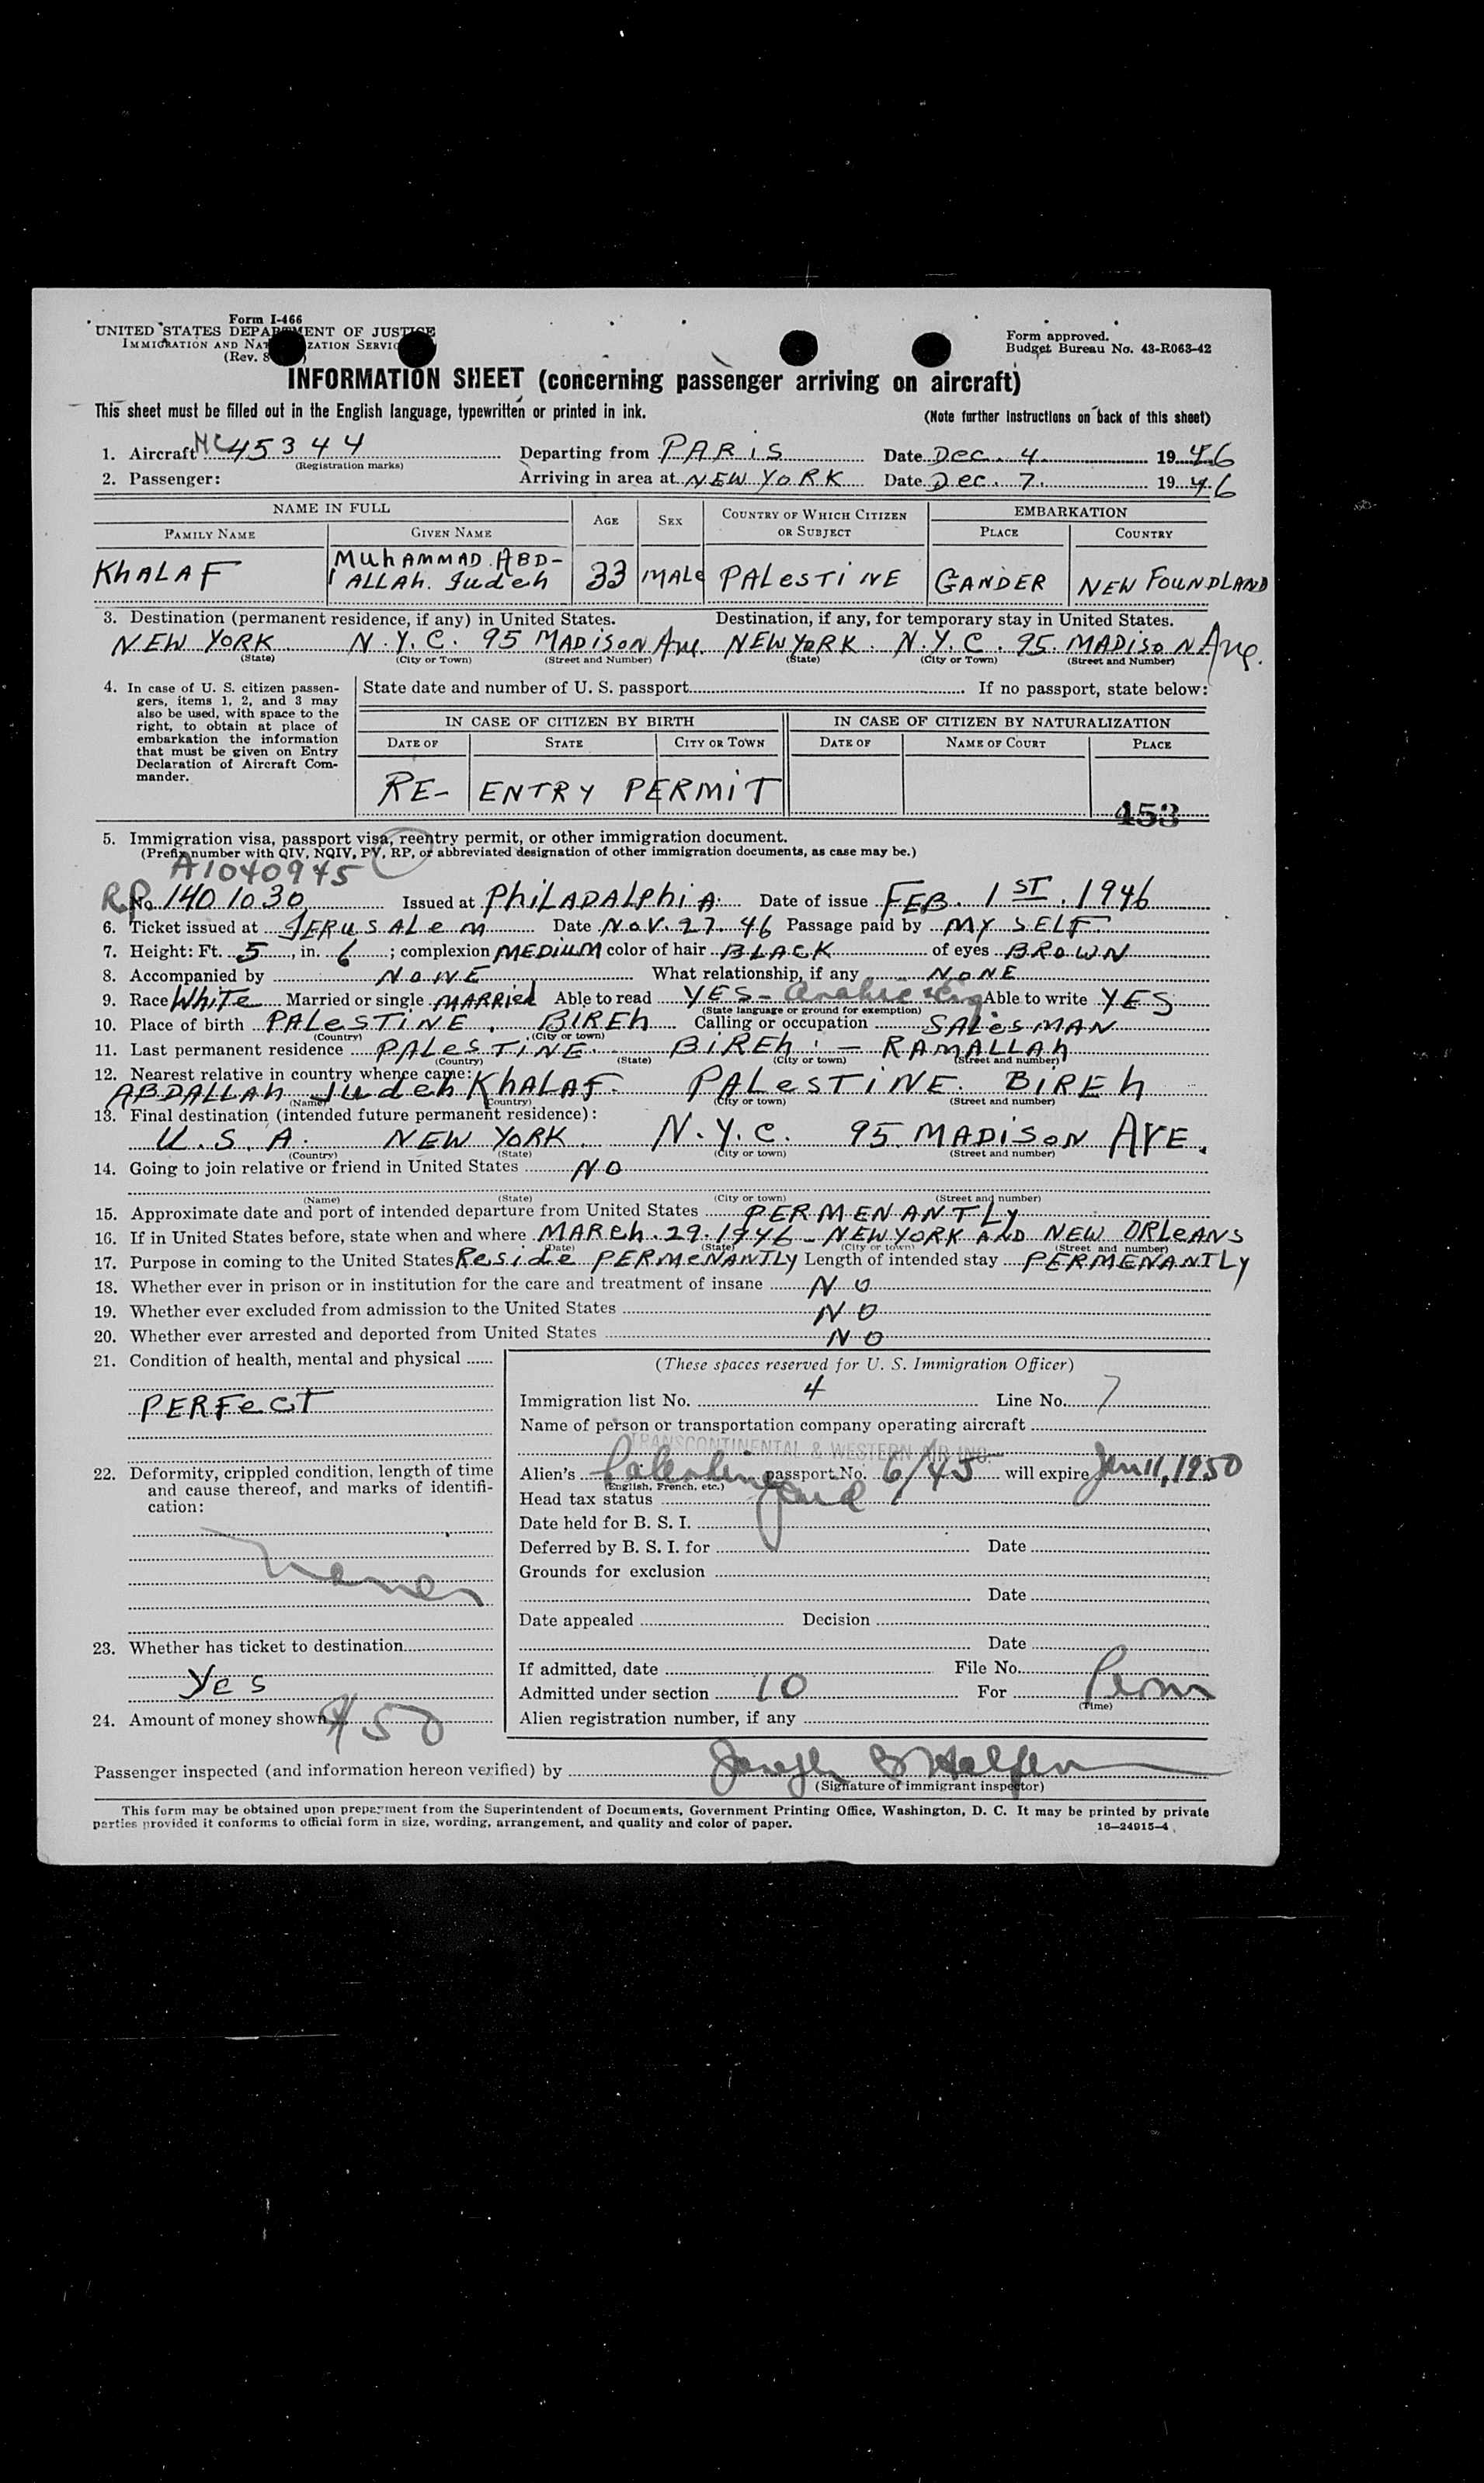 Form I-466
UNITED STATES DEPARTMENT OF JUSTICE
IMMIGRATION AND NATURALIZATION SERVICE
(Rev. 8
Form approved.
Budget Bureau No. 43-R063-42
INFORMATION SHEET (concerning passenger arriving on aircraft)
This sheet must be filled out in the English language, typewritten or printed in ink. (Note further instructions on back of this sheet)
1. Aircraft NC 45344 Departing from PARIS Date Dec. 4. 1946
(Registration marks)
2. Passenger: Arriving in area at NEW YORK Date Dec. 7. 1946
NAME IN FULL AGE SEX COUNTRY OF WHICH CITIZEN OR SUBJECT EMBARKATION
FAMILY NAME GIVEN NAME PLACE COUNTRY
KHALAF MUhAMMAD ABD-ALLAh. Judeh 33 MALe PALeSTiNE GANDER NEW FOUNDLAND
3. Destination (permanent residence, if any) in United States. Destination, if any, for temporary stay in United States.
NEW YORK N.Y.C. 95 MADiSON Ave. NEW YORK. N.Y.C. 95. MADiSON Ave.
(State) (City or Town) (Street and Number) (State) (City or Town) (Street and Number)
4. In case of U. S. citizen passengers, items 1, 2, and 3 may also be used, with space to the right, to obtain at place of embarkation the information that must be given on Entry Declaration of Aircraft Commander.
State date and number of U. S. passport If no passport, state below:
IN CASE OF CITIZEN BY BIRTH IN CASE OF CITIZEN BY NATURALIZATION
DATE OF STATE CITY OR TOWN DATE OF NAME OF COURT PLACE
RE- ENTRY PERMiT
453
5. Immigration visa, passport visa, reentry permit, or other immigration document.
(Prefix number with QIV, NQIV, PV, RP, or abbreviated designation of other immigration documents, as case may be.)
A1040945
RP No. 1401030 Issued at PhiLADALPhiA. Date of issue FEB. 1ST. 1946
6. Ticket issued at JERUSALem Date Nov. 27. 46 Passage paid by MY SELF.
7. Height: Ft. 5, in. 6; complexion MEDIUM color of hair BLACK of eyes BROWN
8. Accompanied by NONE What relationship, if any NONE
9. Race White Married or single MARRied Able to read YES- Arabic + Eng Able to write YES
(State language or ground for exemption)
10. Place of birth PALeSTiNE. BIREh Calling or occupation SALeSMAN
(Country) (City or town)
11. Last permanent residence PALeSTINE. BiREh. - RAMALLAh
(Country) (State) (City or town) (Street and number)
12. Nearest relative in country whence came:
ABDALLAh Judeh KhALAF. PALeSTiNE. BIREh
(Name) (Country) (City or town) (Street and number)
13. Final destination (intended future permanent residence):
U.S.A. NEW YORK. N.Y.C. 95 MADiSON AVE.
(Country) (State) (City or town) (Street and number)
14. Going to join relative or friend in United States NO
(Name) (State) (City or town) (Street and number)
15. Approximate date and port of intended departure from United States PERMENANTLy
16. If in United States before, state when and where MARch. 29. 1946 - NEW YORK AND NEW ORLeANS
(Date) (State) (City or town) (Street and number)
17. Purpose in coming to the United States Reside PERMeNANTLy Length of intended stay PERMENANTLy
18. Whether ever in prison or in institution for the care and treatment of insane NO
19. Whether ever excluded from admission to the United States NO
20. Whether ever arrested and deported from United States NO
21. Condition of health, mental and physical
PERFeCT
22. Deformity, crippled condition, length of time and cause thereof, and marks of identification:
23. Whether has ticket to destination
Yes
24. Amount of money shown $50
(These spaces reserved for U. S. Immigration Officer)
Immigration list No. 4 Line No. 7
Name of person or transportation company operating aircraft
TRANSCONTINENTAL & WESTERN AIR INC.
Alien's Palestine passport No. 6/45 will expire Jan 11, 1950
(English, French, etc.)
Head tax status
Date held for B. S. I.
Deferred by B. S. I. for Date
Grounds for exclusion
Date
Date appealed Decision
Date
If admitted, date File No.
Admitted under section 10 For Perm
(Time)
Alien registration number, if any
Passenger inspected (and information hereon verified) by Joseph
(Signature of immigrant inspector)
This form may be obtained upon prepayment from the Superintendent of Documents, Government Printing Office, Washington, D. C. It may be printed by private
parties provided it conforms to official form in size, wording, arrangement, and quality and color of paper. 16—24915-4